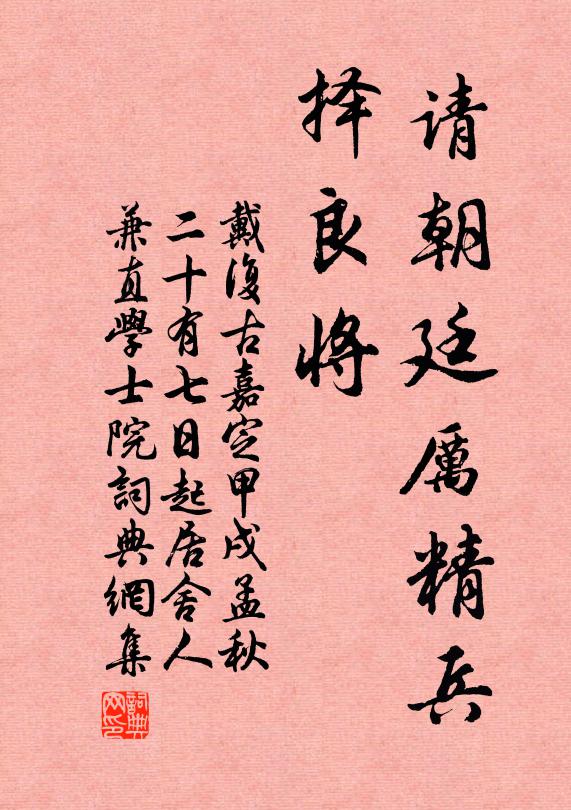 请朝廷厲精兵
择良将
戴復古嘉定甲戌孟秋
二十有七日起居舍人
兼直學士院詞典網集
詞典网印